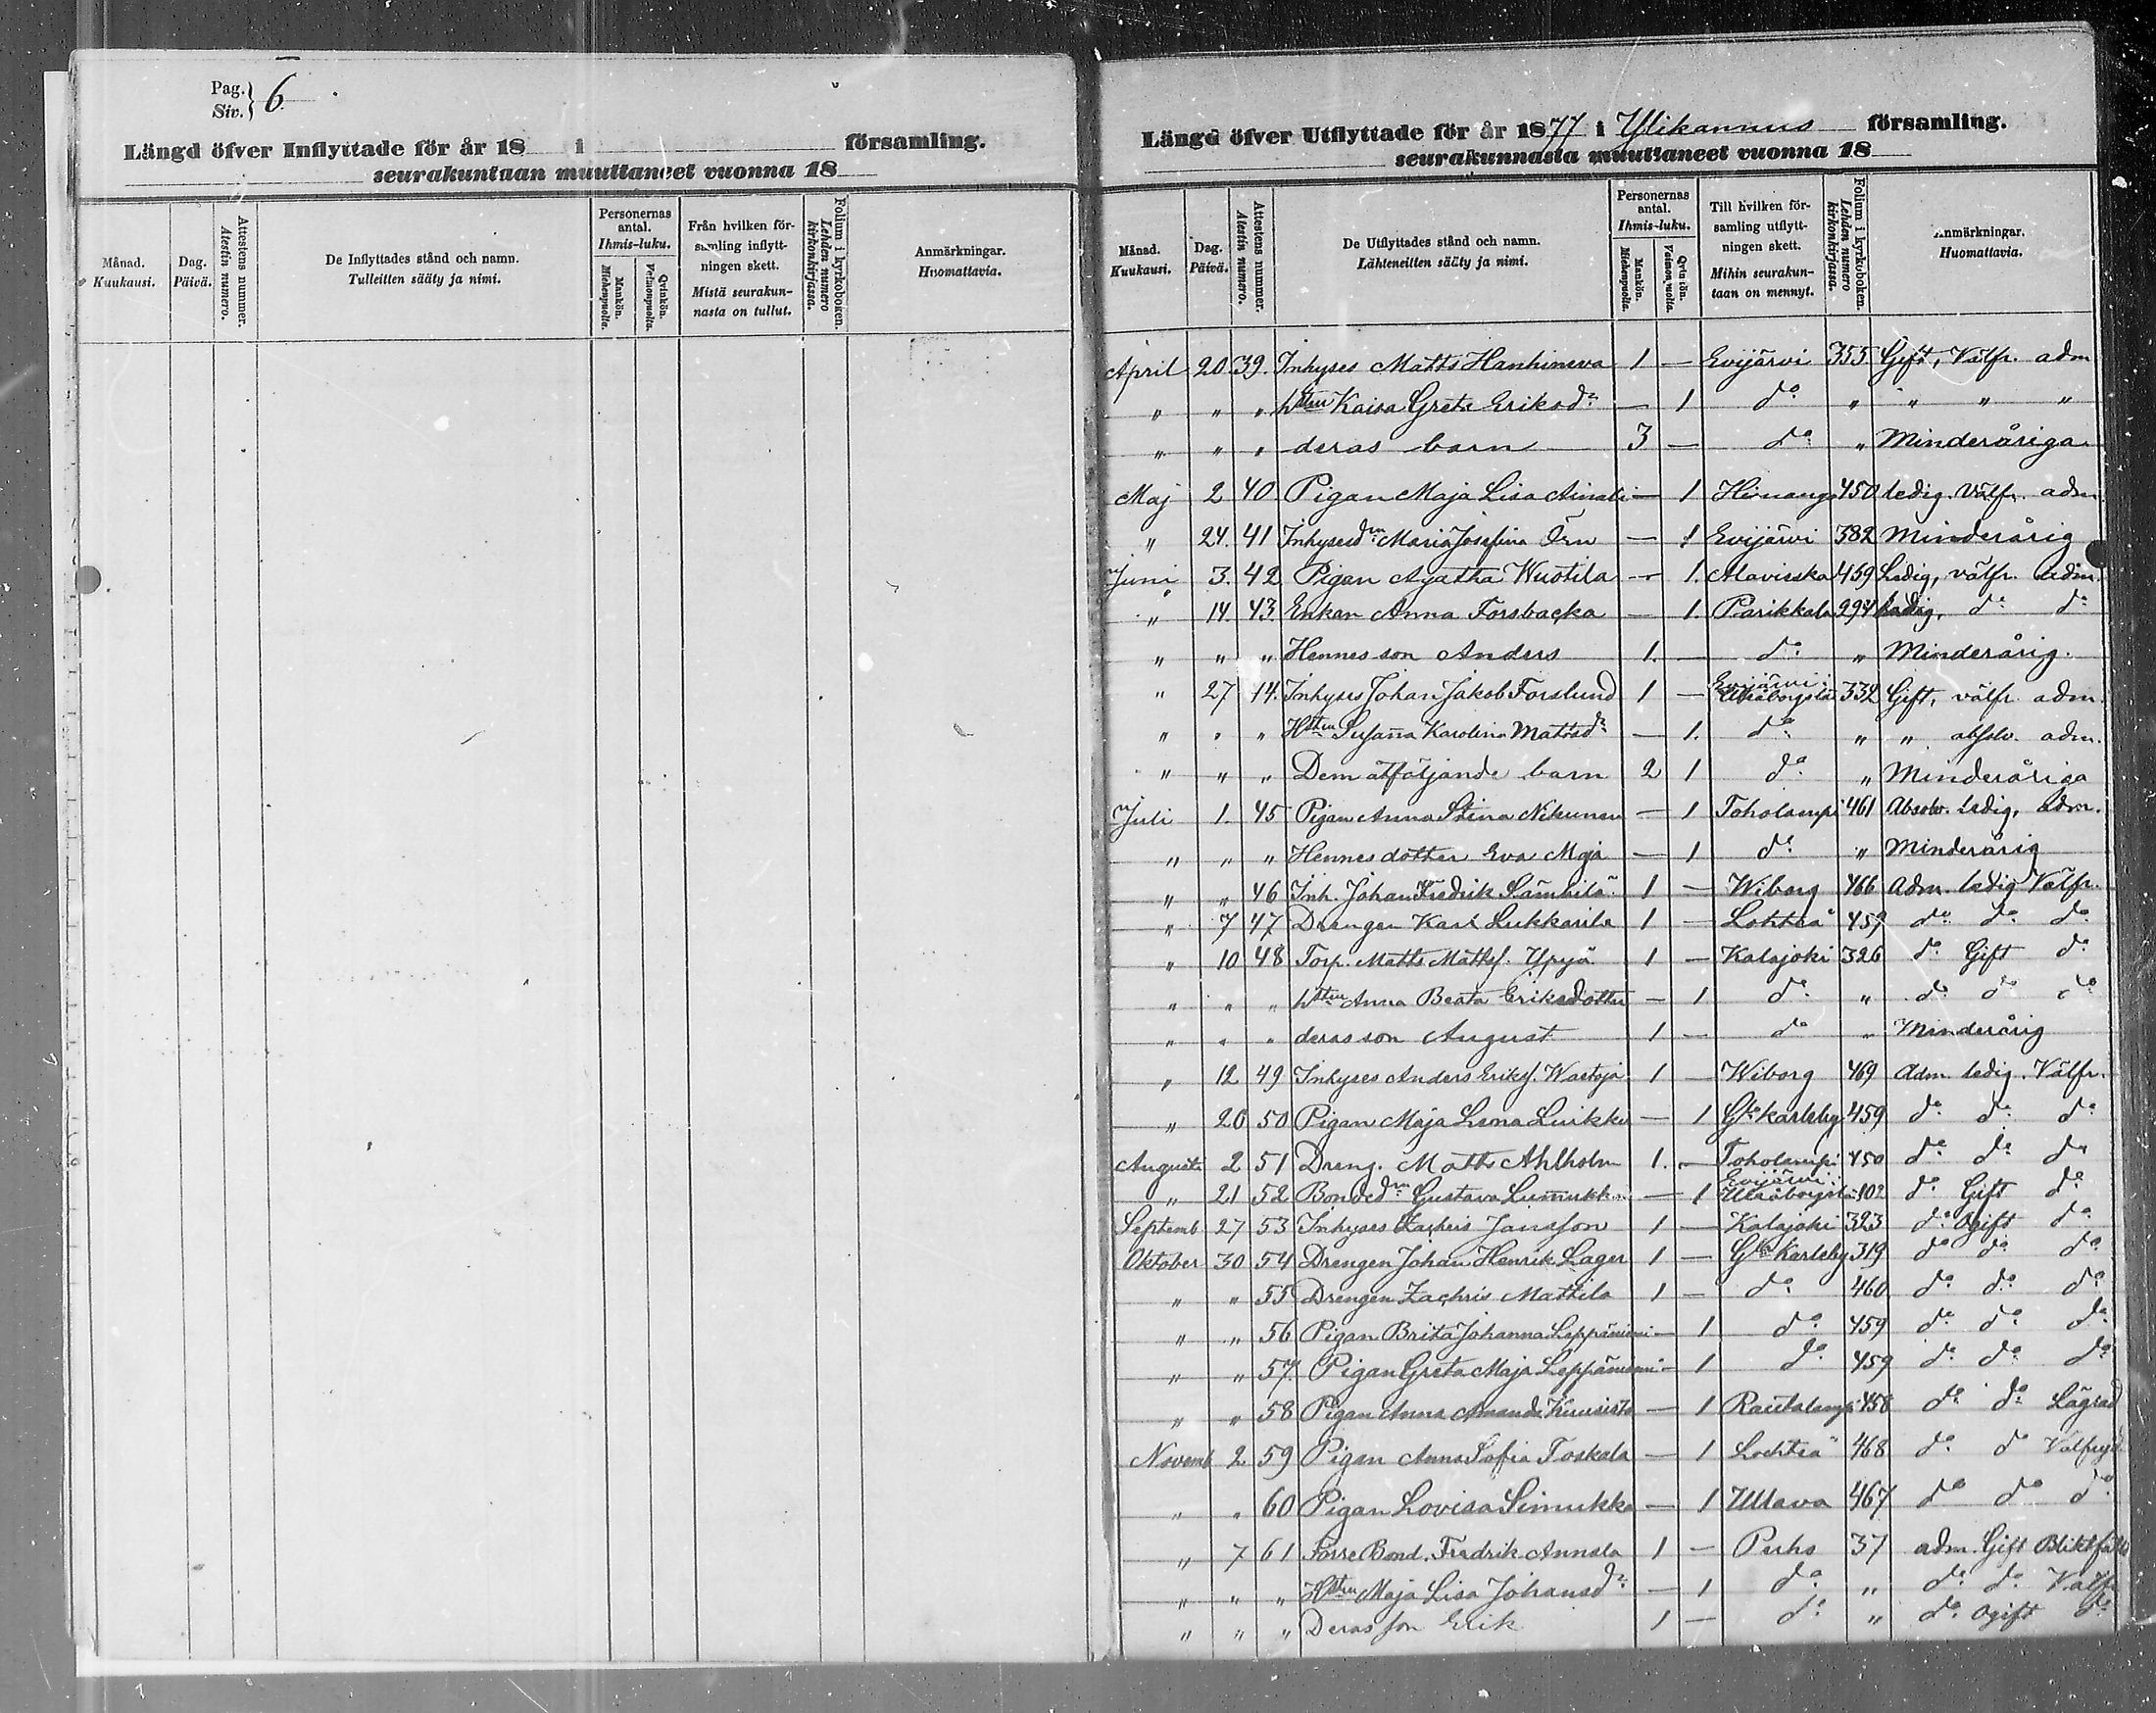 Pag.
Siv. } 6.
Längd öfver Inflyttade för år 18 i församling.
seurakuntaan muuttaneet vuonna 18
Månad. Kuukausi.
Dag. Päivä.
Attestens nummer. Atestin numero.
De Inflyttades stånd och namn. Tulleitten sääty ja nimi.
Personernas antal. Ihmis-luku.
Mankön. Miehenpuolta.
Qvinkön. Vaimonpuolta.
Från hvilken församling inflyttningen skett. Mistä seurakunnasta on tullut.
Folium i kyrkoboken. Lehden numero kirkonkirjassa.
Anmärkningar. Huomattavia.
Längd öfver Utflyttade för år 1877 i Ylikannus församling.
seurakunnasta muuttaneet vuonna 18
Månad. Kuukausi.
Dag. Päivä.
Attestens nummer. Atestin numero.
De Utflyttades stånd och namn. Lähteneitten sääty ja nimi.
Personernas antal. Ihmis-luku.
Mankön. Miehenpuolta.
Qvinkön. Vaimonpuolta.
Till hvilken församling utflyttningen skett. Mihin seurakuntaan on mennyt.
Folium i kyrkoboken. Lehden numero kirkonkirjassa.
Anmärkningar. Huomattavia.
April 20. 39. Inhyses Matts Hanhineva 1 — Evijärvi 355 Gift, Välfr. adm
" " " hstru Kaisa Greta Eriksdr — 1 do " " " "
" " " deras barn 3 — do " Minderåriga
Maj 2 40. Pigan Maja Lisa — 1 Himanga 450 ledig. Välfr. adm.
" 24. 41 Inhysesdrn Maria Josefina Örn — 1 Evijärvi 382 Minderårig
Juni 3. 42 Pigan Agatha Wuotila — 1. Alavieska 459 Ledig, välfr. adm.
" 14. 43. Enkan Anna Forsbacka — 1. Parikkala 294 ledig, do do
" " " Hennes son Anders 1. — do " Minderårig.
" 27 14. Inhyses Johan Jakob Forslund 1 — Evijärvi 332 Gift, välfr. adm.
" " " Hstru Susanna Karolina Mattsdr — 1. do " " absolv. adm.
" " " Dem åtföljande barn 2 1 do " Minderåriga
Juli 1. 45 Pigan Anna Stina Nikunen — 1 Toholampi 461 Absolv. ledig, adm.
" " " Hennes dotter Eva Maja — 1 do " Minderårig
" " 46 Inh. Johan Fredrik 1 — Wiborg 466 Adm. ledig Välfr.
" 7 47 Drengen Karl Lukkarila 1 — Lohteå 459 do do do
" 10 48 Torp. Matts Mattss. Ypyä 1 — Kalajoki 326 do Gift do
" " " hstru Anna Beata Eriksdotter — 1 do " do do do
" " " deras son August 1 — do " Minderårig
" 12 49 Inhyses Anders Erikss. 1 — Wiborg 469 Adm. ledig. Välfr.
" 20 50 Pigan Maja Lena Luikku — 1 Gla Karleby 459 do do do
Augusti 2 51 Dreng. Matts Ahlholm 1. — Toholampi 450 do do do
" 21 52 Bondedrn Gustava — 1 Evijärvi 102 do Gift do
Septemb 27 53 Inhyses Zachris Jansson 1 — Kalajoki 323 do Ogift do
Oktober 30 54 Drengen Johan Henrik Lager 1 — Gla Karleby 319 do do do
" " 55 Drengen Zachris Mattila 1 — do 460 do do do
" " 56 Pigan Brita Johanna Leppäniemi — 1 do 459 do do do
" " 57. Pigan Greta Maja Leppäniemi — 1 do 459 do do do
" " 58 Pigan Anna Amanda Kuusisto — 1 Rautalampi 458 do do Lägrad
Novemb 2 59 Pigan Anna Sofia Toskala — 1 Lochteå 468 do do Välfrejd
" " 60 Pigan Lovisa Simukka — 1 Ullava 467 do do do
" 7 61 Bond. Fredrik Annala 1 — Perho 37 adm. Gift
" " " Hstru Maja Lisa Johansdr — 1 do " do do Välfr
" " " Deras son Erik 1 — do " do Ogift do